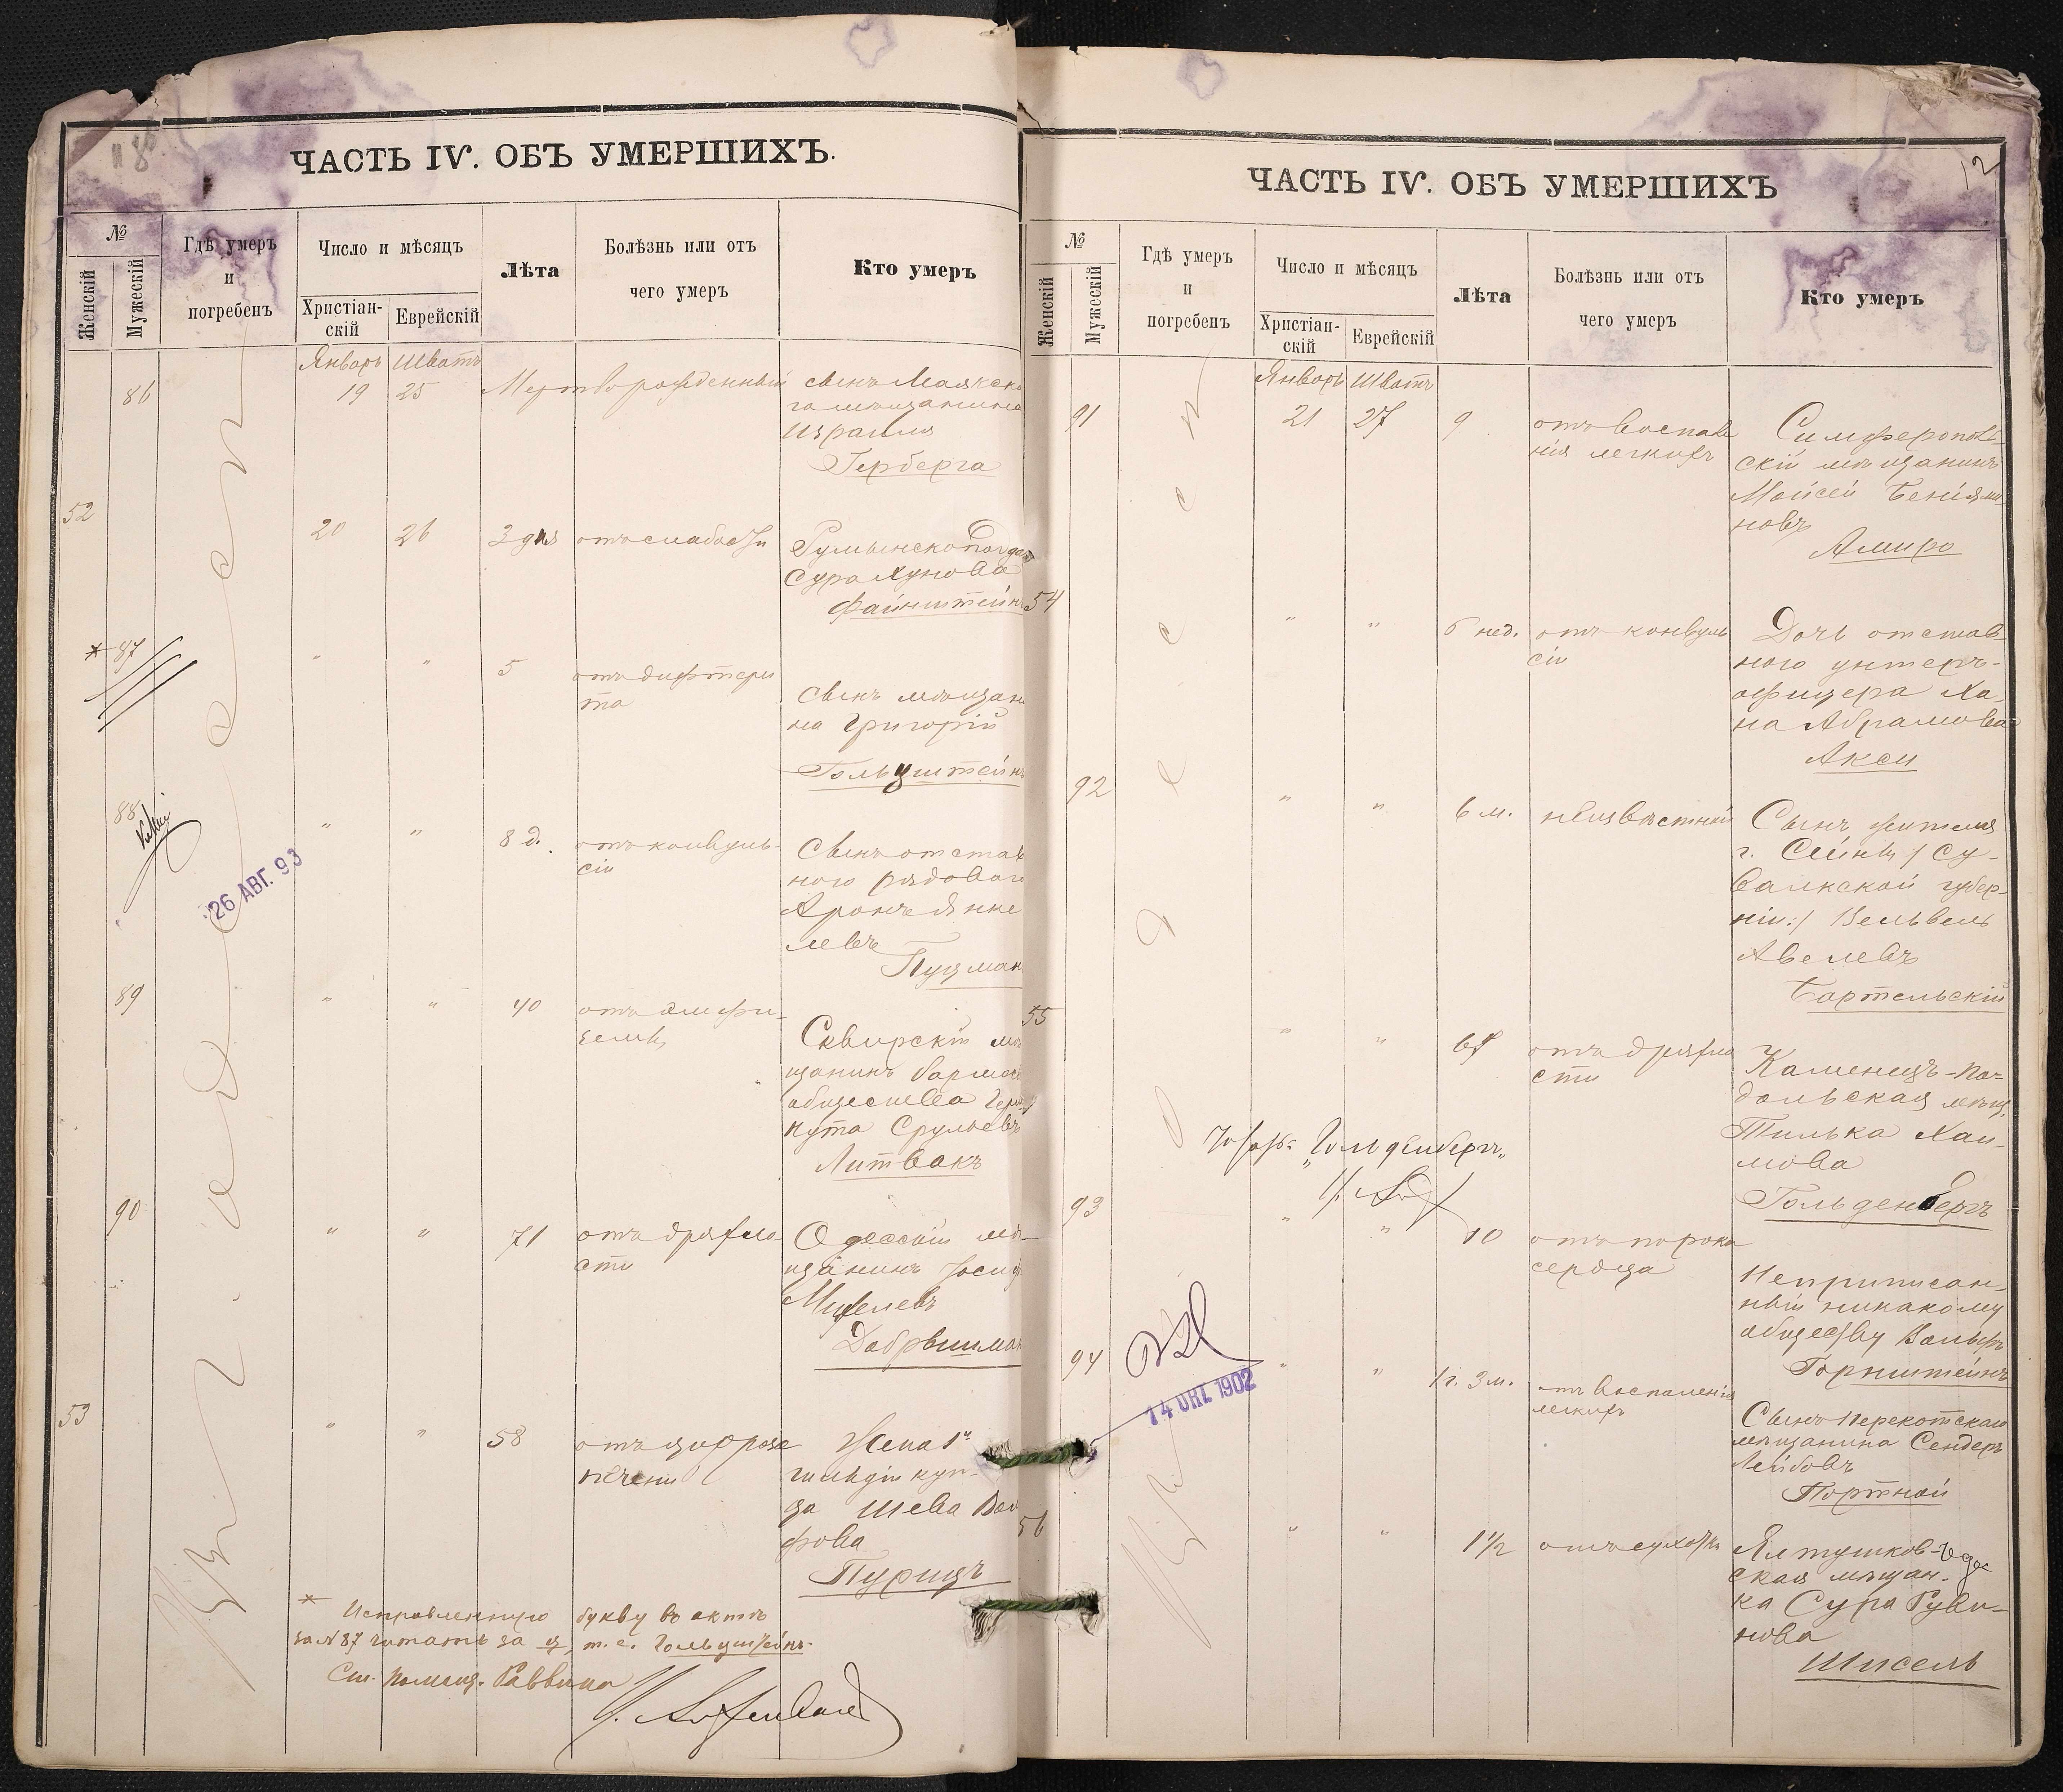 ЧАСТЬ IV. ОБЪ УМЕРШИХЪ.
№
Женскій
Мужескій
Гдѣ умеръ
и
погребенъ
Число и мѣсяцъ
Христіан-
скій
Еврейскій
Лѣта
Болѣзнь или отъ
чего умеръ
Кто умеръ
Январь Шватъ
86 19 25 Мертворожденный
сынъ Маякска
го мѣщанина
Израиля
Герберга
52
20 26 3 дня отъ слабости
Румынскоподдан
Сура Хунова
Файнштейнъ
* 87 " " 5 отъ дифтери
та
сынъ мѣщани
на Григорій
Гольцштейнъ
88 " " 8 д. отъ конвуль-
сіи
Сынъ отстав
ного рядового
Аронъ Янке
левъ
Пуцман
26 АВГ. 93
89 " " 40 отъ эмфи-
земы
Сквирскій мѣ
щанинъ
общества
Нута Срулевъ
Литвакъ
90 " " 71 отъ дряхло
сти
Одесскій мѣ-
щанинъ Іосиф
Михелевъ
53 " " 58 отъ цирроза
печени
Жена 1й
гильдіи куп-
ца Шева Вол
фова
Пурицъ
* Исправленную букву въ актѣ
за № 87 читать за ц, т. е. Гольцштейнъ.
См. помощ. Раввина
ЧАСТЬ IV. ОБЪ УМЕРШИХЪ
12
№
Женскій
Мужескій
Гдѣ умеръ
и
погребенъ
Число и мѣсяцъ
Христіан-
скій
Еврейскій
Лѣта
Болѣзнь или отъ
чего умеръ
Кто умеръ
Январь Шватъ
91 21 27 9 отъ воспале
нія легкихъ
Симферополь-
скій мѣщанинъ
Моисей Беніями
новъ
Амиро
54 " " 6 нед. отъ конвуль
сіи
Дочь отстав-
ного унтеръ-
офицера Ха-
на Абрамова
Акси
92 " " 6 м. неизвѣстной
Сынъ жителя
г. Сейны /: Су-
валкской губер-
ніи :/ Вельвель
Авелевъ
Бартельскій
55 " " отъ дряхло
сти
Каменецъ-По-
дольская мѣщ.
Тилька Хаи-
мова
Гольденбергъ
"Гольденбергъ"
93 " " 10 отъ порока
сердца
Неприписан-
ный никакому
обществу Вольфъ
Горнштейнъ
94 " " 1 г. 3 м. отъ воспаленія
легкихъ
14 ОКТ. 1902
Сынъ Перекопскаго
мѣщанина Сендеръ
Лейбовъ
Портной
56 " " 1 1/2
Ялтушков-
ская мѣщан-
ка Сура Руви-
нова
Шисель